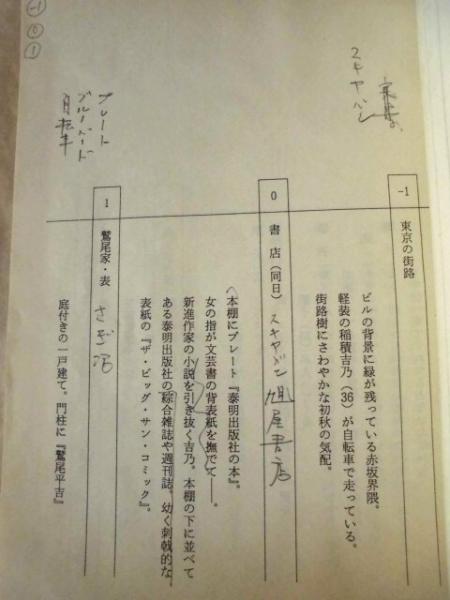 -1
0
1
-1
東京の街路
ビルの背景に緑が残っている赤坂界隈。
軽装の稲積吉乃(36)が自転車で走っている。
街路樹にさわやかな初秋の気配。
0
書店(同日)
旭屋書店
本棚にプレート『泰明出版社の本』。
女の指が文芸書の背表紙を撫でて――。
新進作家の小説を引き抜く吉乃。本棚の下に並べて
ある泰明出版社の綜合雑誌や週刊誌。幼く刺戟的な
表紙の『ザ・ビッグ・サン・コミック』。
プレート
ブルーバード
自転車
1
鷲尾家・表
庭付きの一戸建て。門柱に『鷲尾平吉』